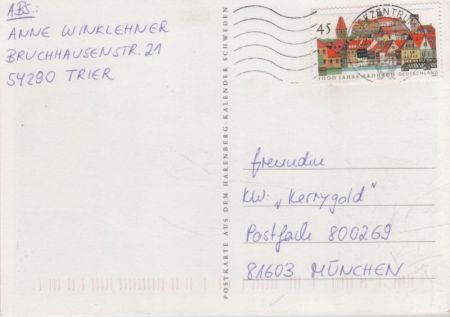 ABS.:
ANNE WINKLEHNER
BRUCHHAUSENSTR. 21
54290 TRIER
POSTKARTE AUS DEM HARENBERG-KALENDER SCHWEDEN
45
1000 JAHRE
DEUTSCHLAND
Freundin
KW: „Kerrygold"
Postfach 800269
81603 MÜNCHEN